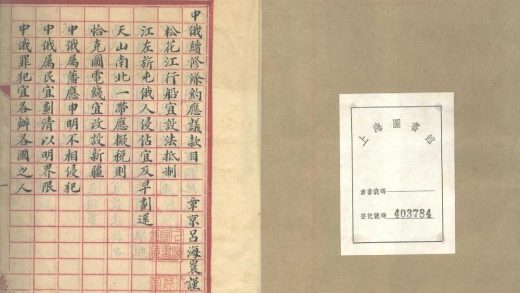 中俄續修條約應議款目 章京呂海寰謹
松花江行船宜設法抵制
江左旂屯俄人侵佔宜及早劃還
天山南北一帶應擬稅則
恰克圖電綫宜改設新疆
中俄屬藩應申明不相侵犯
中俄屬民宜劃清以明界限
中俄罪犯宜各辦各國之人
上海圖書館
索書號碼
登記號碼 403784